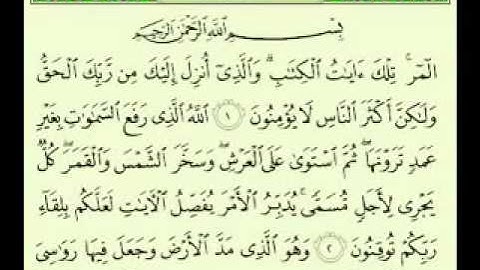 بِسْمِ ٱللَّهِ ٱلرَّحْمَٰنِ ٱلرَّحِيمِ
الٓمٓر ۚ تِلْكَ ءَايَٰتُ ٱلْكِتَٰبِ ۗ وَٱلَّذِىٓ أُنزِلَ إِلَيْكَ مِن رَّبِّكَ ٱلْحَقُّ
وَلَٰكِنَّ أَكْثَرَ ٱلنَّاسِ لَا يُؤْمِنُونَ ١ ٱللَّهُ ٱلَّذِى رَفَعَ ٱلسَّمَٰوَٰتِ بِغَيْرِ
عَمَدٍ تَرَوْنَهَا ۖ ثُمَّ ٱسْتَوَىٰ عَلَى ٱلْعَرْشِ ۖ وَسَخَّرَ ٱلشَّمْسَ وَٱلْقَمَرَ ۖ كُلٌّ
يَجْرِى لِأَجَلٍ مُّسَمًّى ۚ يُدَبِّرُ ٱلْأَمْرَ يُفَصِّلُ ٱلْءَايَٰتِ لَعَلَّكُم بِلِقَآءِ
رَبِّكُمْ تُوقِنُونَ ٢ وَهُوَ ٱلَّذِى مَدَّ ٱلْأَرْضَ وَجَعَلَ فِيهَا رَوَٰسِىَ